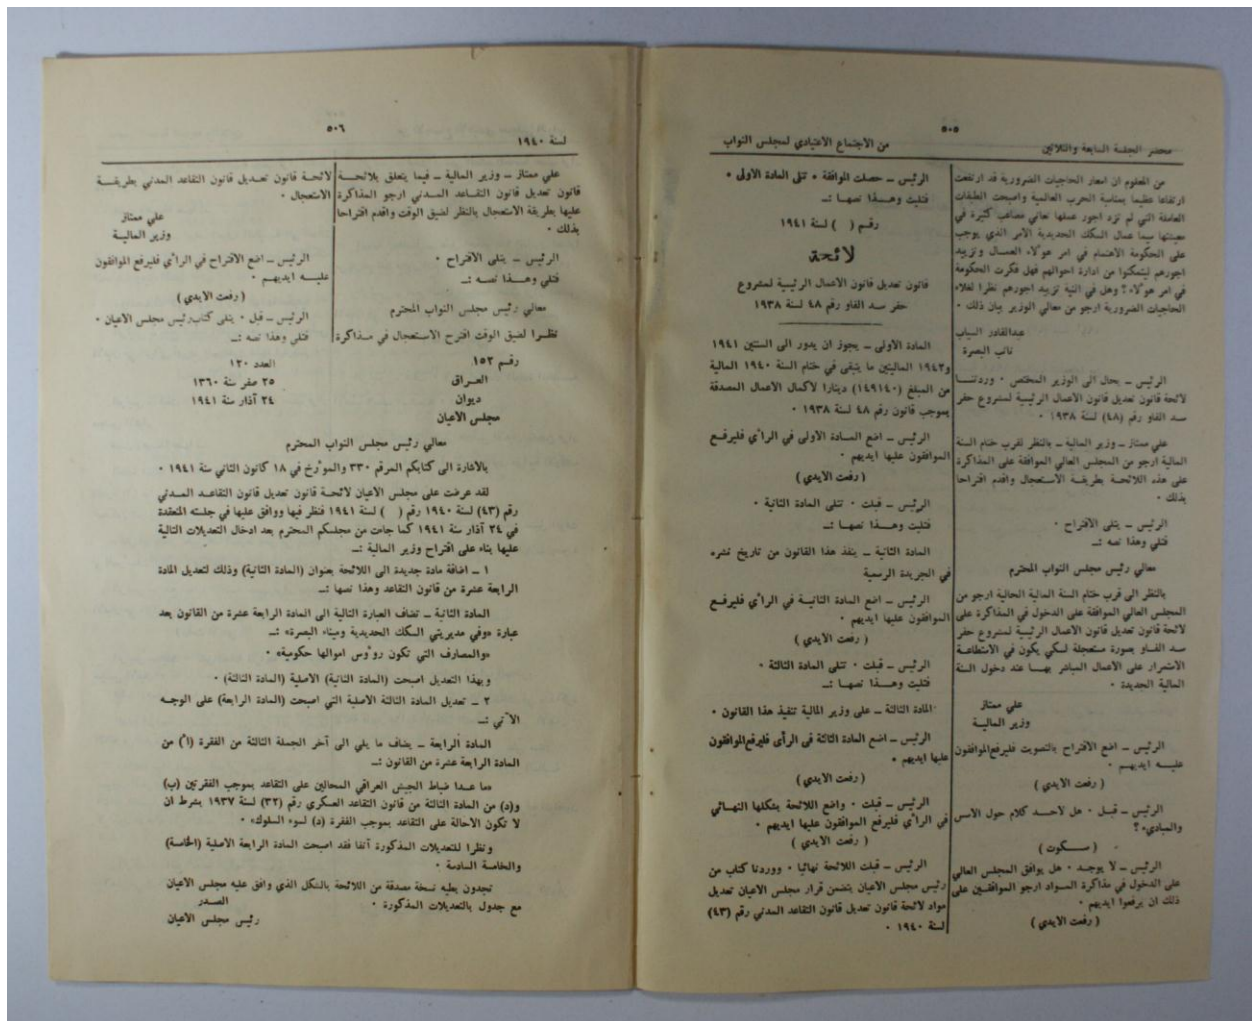 ٥٠٥
محضر الجلسة السابعة والثلاثين
من الاجتماع الاعتيادي لمجلس النواب
من المعلوم ان اسعار الحاجيات الضرورية قد ارتفعت
ارتفاعا عظيما بمناسبة الحرب العالمية واصبحت الطبقات
العاملة التي لم تزد اجور عملها تعاني مصاعب كثيرة في
معيشتها سيما عمال السكك الحديدية الامر الذي يوجب
على الحكومة الاهتمام في امر هؤلاء العمال وتزييد
اجورهم ليتمكنوا من ادارة احوالهم فهل فكرت الحكومة
في امر هؤلاء؟ وهل في النية تزييد اجورهم نظرا لغلاء
الحاجيات الضرورية ارجو من معالي الوزير بيان ذلك ٠
عبدالقادر السياب
نائب البصرة
الرئيس ــ يحال الى الوزير المختص ٠ وردتنا
لائحة قانون تعديل قانون الاعمال الرئيسية لمشروع حفر
سد الفاو رقم (٤٨) لسنة ١٩٣٨ ٠
علي ممتاز ــ وزير المالية ــ بالنظر لقرب ختام السنة
المالية ارجو من المجلس العالي الموافقة على المذاكرة
على هذه اللائحة بطريقة الاستعجال واقدم اقتراحا
بذلك ٠
الرئيس ــ يتلى الاقتراح ٠
فتلي وهذا نصه :ــ
معالي رئيس مجلس النواب المحترم
بالنظر الى قرب ختام السنة المالية الحالية ارجو من
المجلس العالي الموافقة على الدخول في المذاكرة على
لائحة قانون تعديل قانون الاعمال الرئيسية لمشروع حفر
سد الفاو بصورة مستعجلة لكي يكون في الاستطاعة
الاستمرار على الاعمال المباشر بها عند دخول السنة
المالية الجديدة ٠
علي ممتاز
وزير المالية
الرئيس ــ اضع الاقتراح بالتصويت فليرفع الموافقون
عليه ايديهم ٠
( رفعت الايدي )
الرئيس ــ قبل ٠ هل لاحد كلام حول الاسس
والمبادىء ؟
( سكوت )
الرئيس ــ لا يوجد ٠ هل يوافق المجلس العالي
على الدخول في مذاكرة المواد ارجو الموافقين على
ذلك ان يرفعوا ايديهم ٠
( رفعت الايدي )
الرئيس ــ حصلت الموافقة ٠ تتلى المادة الاولى ٠
فتليت وهذا نصها :ــ
رقم ( ) لسنة ١٩٤١
لائحة
قانون تعديل قانون الاعمال الرئيسية لمشروع
حفر سد الفاو رقم ٤٨ لسنة ١٩٣٨
المادة الاولى ــ يجوز ان يدور الى السنتين ١٩٤١
و١٩٤٢ الماليتين ما يتبقى في ختام السنة ١٩٤٠ المالية
من المبلغ (١٤٩١٤٠) دينارا لاكمال الاعمال المصدقة
بموجب قانون رقم ٤٨ لسنة ١٩٣٨ ٠
الرئيس ــ اضع المادة الاولى في الرأي فليرفع
الموافقون عليها ايديهم ٠
( رفعت الايدي )
الرئيس ــ قبلت ٠ تتلى المادة الثانية ٠
فتليت وهذا نصها :ــ
المادة الثانية ــ ينفذ هذا القانون من تاريخ نشره
في الجريدة الرسمية
الرئيس ــ اضع المادة الثانية في الرأي فليرفع
الموافقون عليها ايديهم ٠
( رفعت الايدي )
الرئيس ــ قبلت ٠ تتلى المادة الثالثة ٠
فتليت وهذا نصها :ــ
المادة الثالثة ــ على وزير المالية تنفيذ هذا القانون ٠
الرئيس ــ اضع المادة الثالثة في الرأي فليرفع الموافقون
عليها ايديهم ٠
( رفعت الايدي )
الرئيس ــ قبلت ٠ واضع اللائحة بشكلها النهائي
في الرأي فليرفع الموافقون عليها ايديهم ٠
( رفعت الايدي )
الرئيس ــ قبلت اللائحة نهائيا ٠ ووردنا كتاب من
رئيس مجلس الاعيان يتضمن قرار مجلس الاعيان تعديل
مواد لائحة قانون تعديل قانون التقاعد المدني رقم (٤٣)
لسنة ١٩٤٠ ٠
٥٠٦
لسنة ١٩٤٠
علي ممتاز ــ وزير المالية ــ فيما يتعلق بلائحة
قانون تعديل قانون التقاعد المدني ارجو المذاكرة
عليها بطريقة الاستعجال بالنظر لضيق الوقت واقدم اقتراحا
بذلك ٠
الرئيس ــ يتلى الاقتراح ٠
فتلي وهذا نصه :ــ
معالي رئيس مجلس النواب المحترم
نظرا لضيق الوقت اقترح الاستعجال في مذاكرة
لائحة قانون تعديل قانون التقاعد المدني بطريقة
الاستعجال ٠
علي ممتاز
وزير المالية
الرئيس ــ اضع الاقتراح في الرأي فليرفع الموافقون
عليه ايديهم ٠
( رفعت الايدي )
الرئيس ــ قبل ٠ يتلى كتاب رئيس مجلس الاعيان ٠
فتلي وهذا نصه :ــ
رقم ١٥٢
العدد ١٢٠
العراق
٢٥ صفر سنة ١٣٦٠
ديوان
٢٤ آذار سنة ١٩٤١
مجلس الاعيان
معالي رئيس مجلس النواب المحترم
بالاشارة الى كتابكم المرقم ٣٣٠ والمؤرخ في ١٨ كانون الثاني سنة ١٩٤١ ٠
لقد عرضت على مجلس الاعيان لائحة قانون تعديل قانون التقاعد المدني
رقم (٤٣) لسنة ١٩٤٠ رقم ( ) لسنة ١٩٤١ فنظر فيها ووافق عليها في جلسته المنعقدة
في ٢٤ آذار سنة ١٩٤١ كما جاءت من مجلسكم المحترم بعد ادخال التعديلات التالية
عليها بناء على اقتراح وزير المالية :ــ
١ ــ اضافة مادة جديدة الى اللائحة بعنوان (المادة الثانية) وذلك لتعديل المادة
الرابعة عشرة من قانون التقاعد وهذا نصها :ــ
المادة الثانية ــ تضاف العبارة التالية الى المادة الرابعة عشرة من القانون بعد
عبارة «وفي مديريتي السكك الحديدية وميناء البصرة» :ــ
«والمصارف التي تكون رؤوس اموالها حكومية» ٠
وبهذا التعديل اصبحت (المادة الثانية) الاصلية (المادة الثالثة) ٠
٢ ــ تعديل المادة الثالثة الاصلية التي اصبحت (المادة الرابعة) على الوجه
الآتي :ــ
المادة الرابعة ــ يضاف ما يلي الى آخر الجملة الثالثة من الفقرة (أ) من
المادة الرابعة عشرة من القانون :ــ
«ما عدا ضباط الجيش العراقي المحالين على التقاعد بموجب الفقرتين (ب)
و(د) من المادة الثالثة من قانون التقاعد العسكري رقم (٣٢) لسنة ١٩٣٧ بشرط ان
لا تكون الاحالة على التقاعد بموجب الفقرة (د) لسوء السلوك» ٠
ونظرا للتعديلات المذكورة آنفا فقد اصبحت المادة الرابعة الاصلية (الخامسة)
والخامسة السادسة ٠
تجدون بطيه نسخة مصدقة من اللائحة بالشكل الذي وافق عليه مجلس الاعيان
مع جدول بالتعديلات المذكورة ٠
الصدر
رئيس مجلس الاعيان